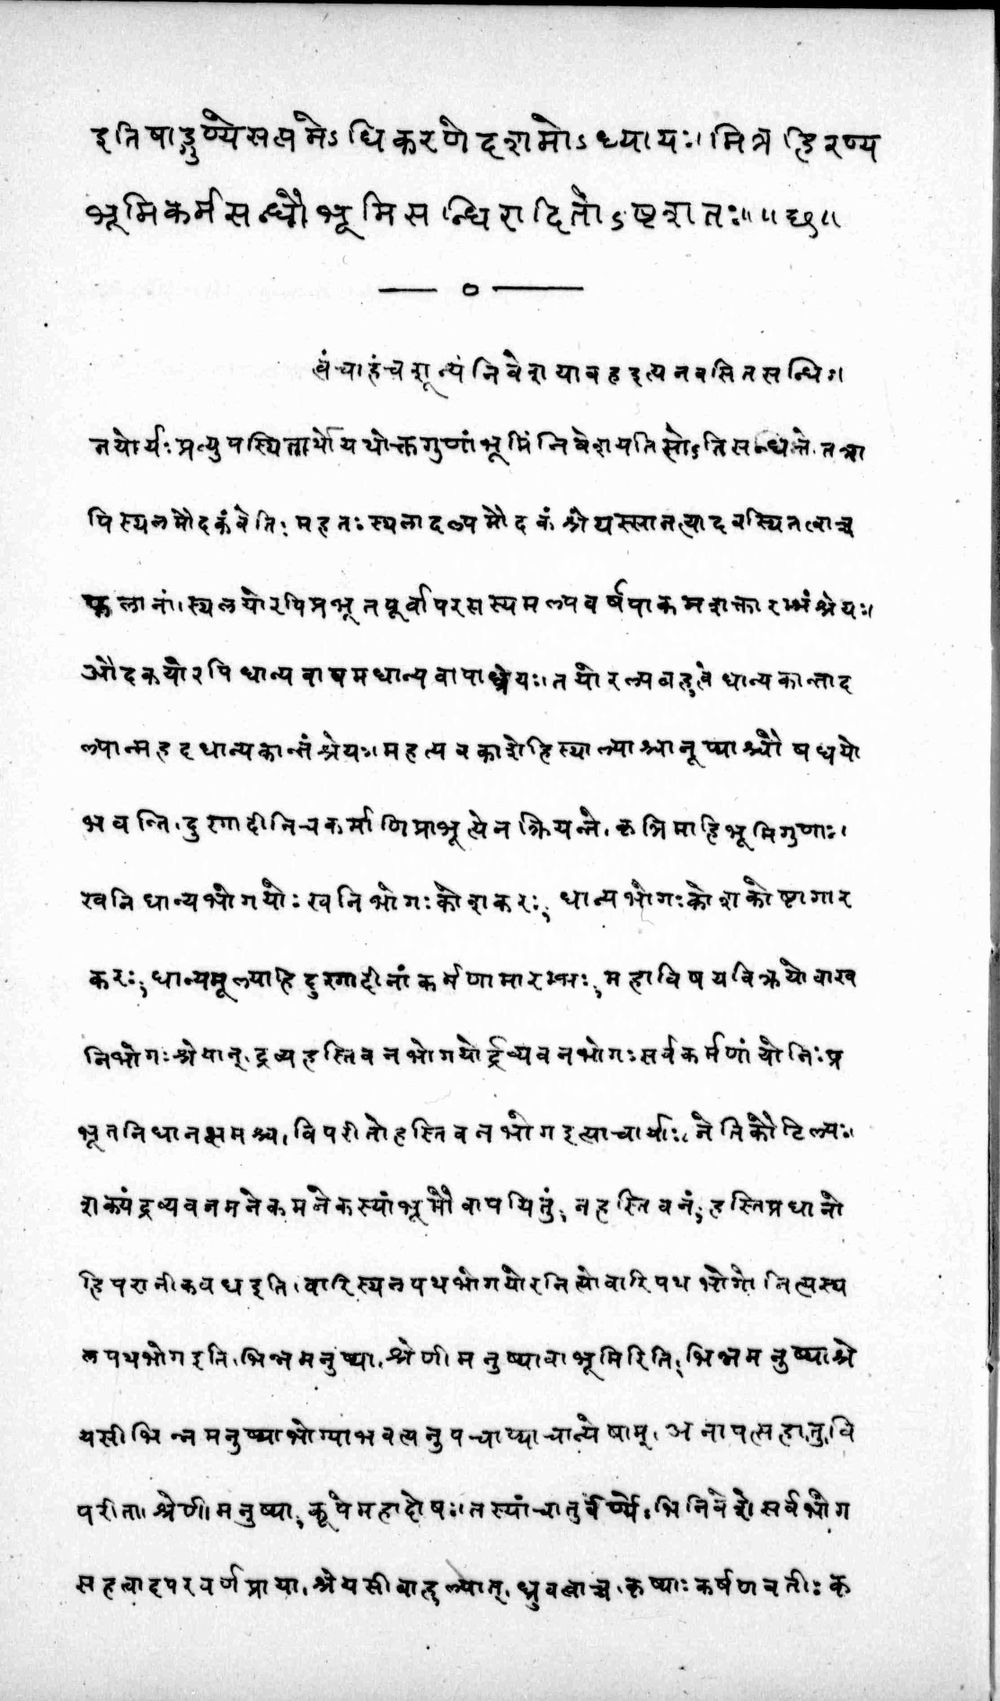 इतिषाड्गुण्येसप्तमेऽधिकरणेदशमोऽध्यायः। मित्रहिरण्य
भूमिकर्मसन्धौभूमिसन्धिरादितोऽष्टशतः॥ ॥ छ॥
त्वंचाहंचशून्यंनिवेशयावहइत्यनवसितसन्धिः।
तयोर्यः प्रत्युपस्थितार्थोयथोक्तगुणांभूमिंनिवेशयतिसोऽतिसन्धत्ते. तत्रा
पिस्थलमौदकंवेति; महतः स्थलादल्पमौदकंश्रेयस्सातत्यादवस्थितत्वाच्च
फलानां। स्थलयोरपिप्रभूतपूर्वापरसस्यमल्पवर्षपाकमसक्तारम्भंश्रेयः।
औदकयोरपिधान्यवापमधान्यवापाच्छ्रेयः। तयोरल्पबहुत्वेधान्यकान्ताद
ल्पान्महदधान्यकान्तंश्रेयः। महत्यवकाशेहिस्थाल्याश्चानूप्याश्चौषधयो
भवन्ति. दुरगादीनिचकर्माणिप्राभूत्येनक्रियन्ते. कत्रिमाहिभूमिगुणाः।
खनिधान्यभोगयोः खनिभोगः कोशकरः; धान्यभोगः कोशकोष्ठागार
करः; धान्यमूल्याहिदुरगादीनांकर्मणामारम्भः; महाविषयविक्रयोवाख
निभोगः श्रेयान्. द्रव्यहस्तिवनभोगयोर्द्रव्यवनभोगः सर्वकर्मणांयोनिः प्र
भूतनिधानक्षमश्च. विपरीतोहस्तिवनभोगइत्याचार्याः. नेतिकौटिल्यः।
शक्यंद्रव्यवनमनेकमनेकस्यांभूमौवापयितुं; नहस्तिवनं; हस्तिप्रधानो
हिपरानीकवधइति. वारिस्थलपथभोगयोरनित्योवारिपथभोगोनित्यस्थ
लपथभोगइति. भिन्नमनुष्या. श्रेणीमनुष्यावाभूमिरिति; भिन्नमनुष्याश्रे
यसीभिन्नमनुष्याभोग्याभवत्यनुपजाप्याचान्येषाम्. अनापत्सहातु, वि
परीताश्रेणीमनुष्या; कूपेमहादोषः। तस्यांचातुर्वर्ण्येऽभिनिवेशेसर्वभोग
सहत्वादपरवर्णप्राया. श्रेयसीबाहुल्यात्. ध्रुवत्वाच्च. कृष्याः कर्षणवतीः क